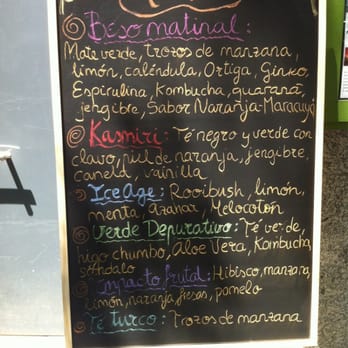 Beso matinal:
Mate verde, trozos de manzana,
limón, caléndula, Ortiga, Ginko,
Espirulina, Kombucha, guaraná,
jengibre, Sabor Naranja-Maracuyá
Kasmiri: Té negro y verde con
clavo, piel de naranja, jengibre,
canela, vainilla
Ice Age: Rooibush, limón,
menta, azahar, Melocotón
Verde Depurativo: Té verde,
higo chumbo, Aloe Vera, Kombucha,
sándalo
Impacto frutal: Hibisco, manzana,
limón, naranja, fresas, pomelo
Té turco: Trozos de manzana